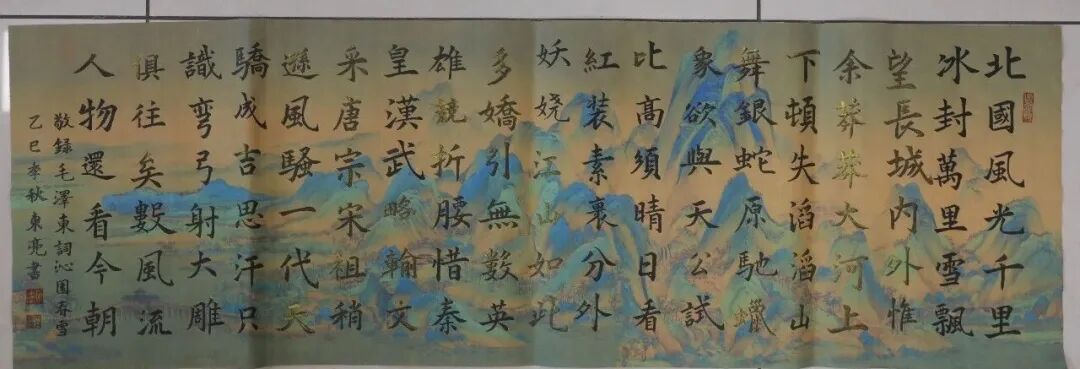 北國風光千里
冰封萬里雪飄
望長城内外惟
余莽莽大河上
下頓失滔滔山
舞銀蛇原馳蠟
象欲與天公試
比高須晴日看
紅装素裹分外
妖嬈江山如此
多嬌引無数英
雄競折腰惜秦
皇漢武略輸文
采唐宗宋祖稍
遜風騷一代天
驕成吉思汗只
識彎弓射大雕
俱往矣數風流
人物還看今朝
敬錄毛澤東詞沁園春雪
乙巳季秋東亮書